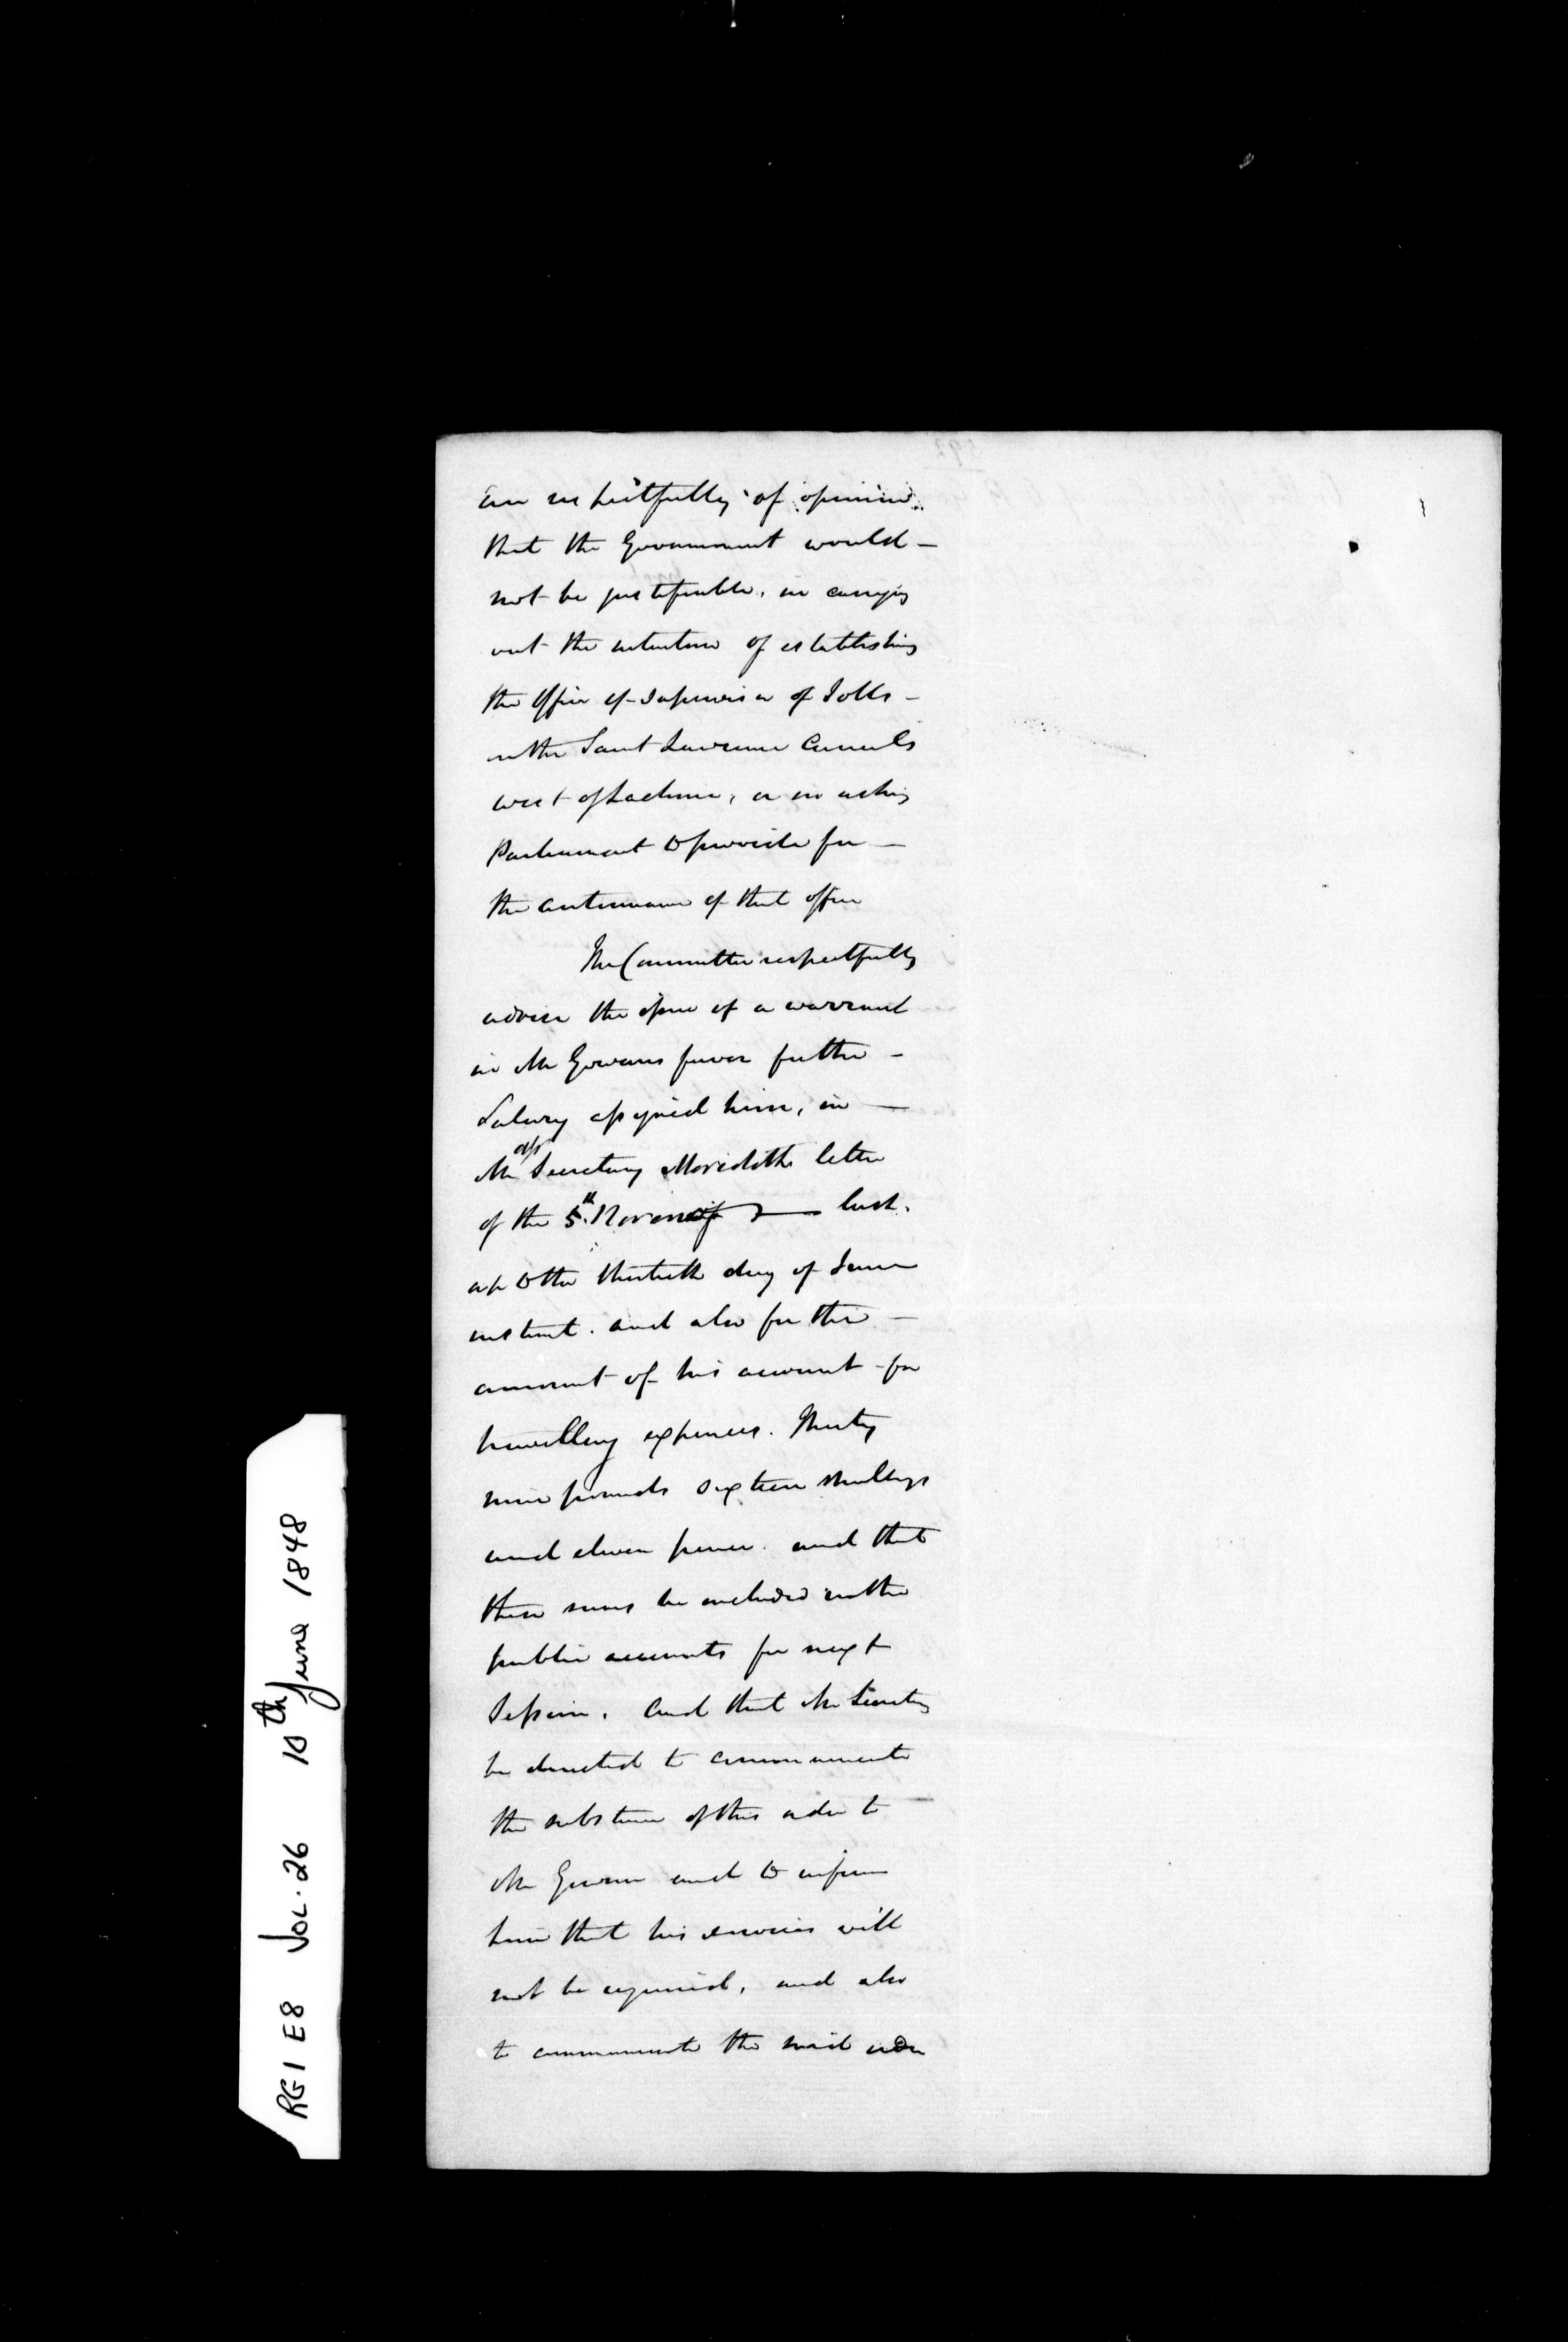 are respectfully of opinion
that the Government would —
not be justifiable, in carrying
out the intention of establishing
the Office of Supervisor of Tolls —
on the Saint Lawrence Canals
west of Lachine, or in asking
Parliament to provide for —
the continuance of that office
The Committee respectfully
advise the issue of a warrant
in Mr Gowans favor for the —
Salary assigned him, in —
Mr assr Secretary Merediths letter
of the 5th. Novem last.
up to the thirtieth day of June
instant. and also for the —
amount of his account for
travelling expenses. Thirty
nine pounds sixteen shillings
and eleven pence. and that
these sums be included in the
public accounts for next
Session. and that Mr Secretary
be directed to communicate
the substance of this order to
Mr Gowan and to inform
him that his services will
not be required, and also
to communicate the said order
RG1 E8 VOL. 26 10th June 1848